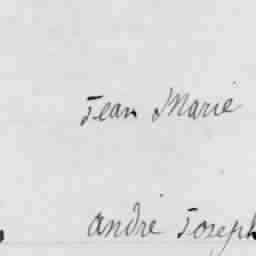 Jean Marie
André Joseph